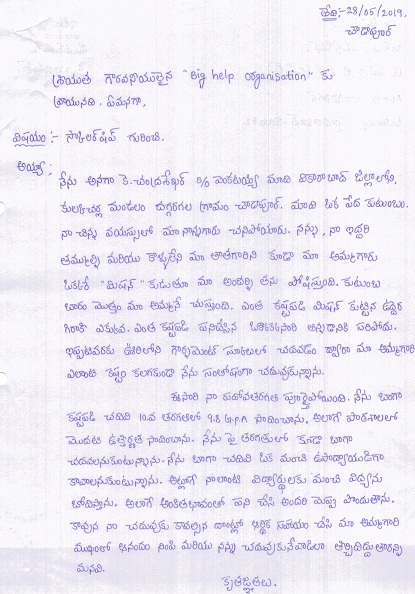 తేది:-28/05/2019.
చౌడాపూర్
శ్రీయుత గౌరవనీయులైన "Big help organisation" కు
వ్రాయునది. ఏమనగా,
విషయం:- స్కాలర్‌షిప్ గురించి.
అయ్యా:
నేను అనగా కె.చంద్రశేఖర్ S/o వెంకటయ్య మాది వికారాబాద్ జిల్లాలోని,
కులకచర్ల మండలం గ్రామం చౌడాపూర్. మాది ఒక పేద కుటుంబం.
నా చిన్న వయస్సులో మా నాన్నగారు చనిపోయారు. నన్ను, నా ఇద్దరి
తమ్ముళ్ళు మరియు కాళ్ళులేని మా తాతగారిని కూడా మా అమ్మగారు
ఒకరే "మిషన్" కుడుతూ మా అందర్ని తను పోషిస్తుంది. కుటుంబ
బారం మొత్తం మా అమ్మనే చూస్తుంది. ఎంత కష్టపడి మిషన్ కుట్టిన
గిరాకీ ఎక్కువ. ఎంత కష్టపడి పనిచేసిన ఒక్కొక్కసారి అన్నడానికి సరిపోదు.
ఇప్పటివరకు ఊరిలోని గార్నమెంట్ స్కూలులో చదవడం ద్వారా మా అమ్మగారి
ఎలాంటి కష్టం కలగకుండా నేను సంతోషంగా చదువుకున్నాను.
ఈసారి నా పదోవతరగతి పూర్తైపోయింది. నేను బాగా
కష్టపడి చదివి 10వ తరగతిలో 9.8 G.P.A సాధించాను. అలాగే పాఠశాలలో
మొదటి ఉత్తీర్ణత సాధించాను. నేను పై తరగతుల్లో కూడా బాగా
చదవలనుకుంటున్నాను. నేను బాగా చదివి ఒక మంచి ఉపాధ్యాయుడిగా
కావాలనుకుంటున్నాను. అట్లాగే నాలాంటి విద్యార్థులకు మంచి విద్యను
బోధిస్తాను. అలాగే అంకితభావంతో పని చేసి అందరి మెప్పు పొందుతాను.
కావున నా చదువుకు కావల్సిన దాంట్లో ఆర్థిక సహాయం చేసి మా అమ్మగారి
ముఖంలో ఆనందం నింపి మరియు నన్ను చదువుకునేవాడిలా తీర్చిదిద్దుతారన్ని
మనవి.
కృతజ్ఞతలు.